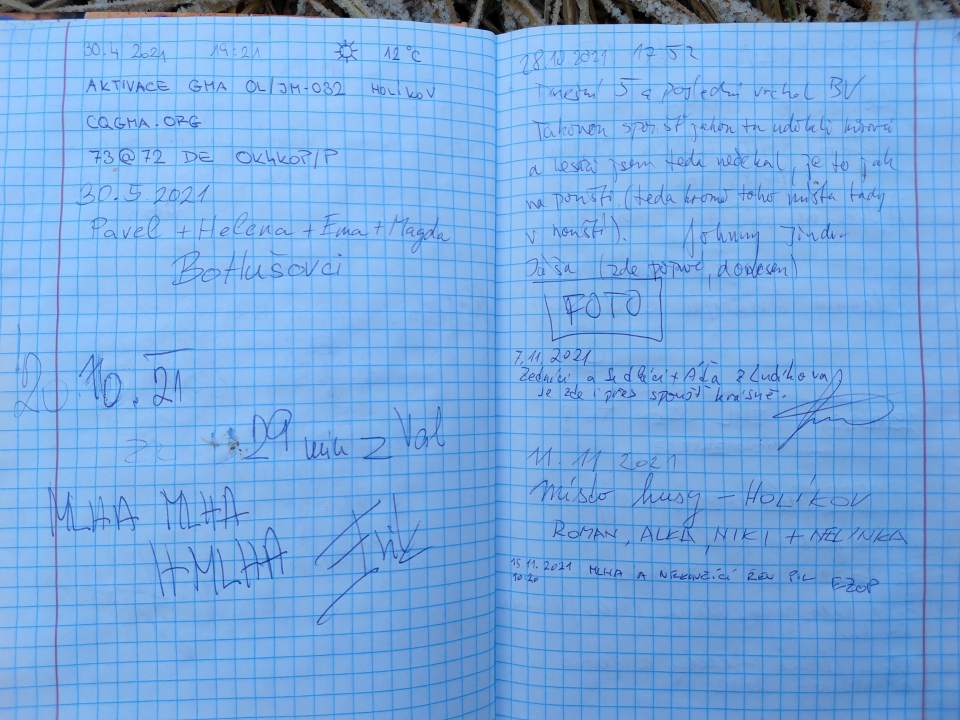 30.4 2021 19:21 12°C
AKTIVACE GMA OL/JM-032 HOLÍKOV
CQGMA.ORG
73@72 DE OK4KOP/P
30.5.2021
Pavel + Helena + Ema + Magda
Bohušovci
20.10.21
29 min z Val
MLHA MLHA
HMLHA
28.10.2021 17:52
Dnešní 5 a poslední vrchol BV
Takovou spoušť jakou tu udělali kůrovci
a lesáci jsem teda nečekal, je to jak
na poušti. (teda kromě toho místa tady
v houští). Johnny Jindr.
Jáša (zde poprvé, donesen)
FOTO
7.11.2021
Zedníci a Sedláci + Áďa z Ludíkova
se zde i přes spoušť krásně.
11.11 2021
Místo husy – HOLÍKOV
ROMAN, ALKA, NIKI + NELINKA
15.11.2021 MLHA A NEKONČÍCÍ ŘEV PIL EZOP
10:20